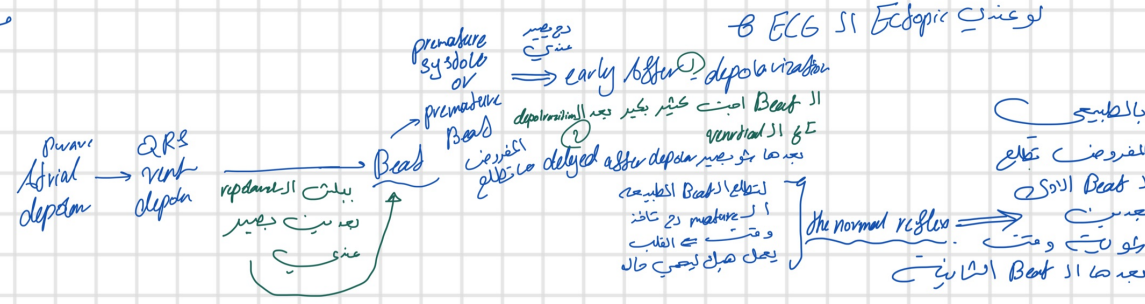 لو عندي Ectopic ال ECG
P wave
Atrial
depolari
QRS
vent
depolar
يبلش ال
بعدين بصير
عندي
Beat
premature
systole
or
premature
Beat
رح يصير
عندي
early After depolarization ①
ال Beat اجت كثير بكير بعد ال
② delayed after depolar
المفروض
ما تطلع
بعدها شو بصير
لتطلع ال Beat الطبيعية
ال رح تاخذ
وقت = القلب
يعمل هيك ليحمي حاله
the normal reflex
بالطبيعي
المفروض تطلع
ال Beat الاولى
بعدين
وقت
بعدها ال Beat الثانية